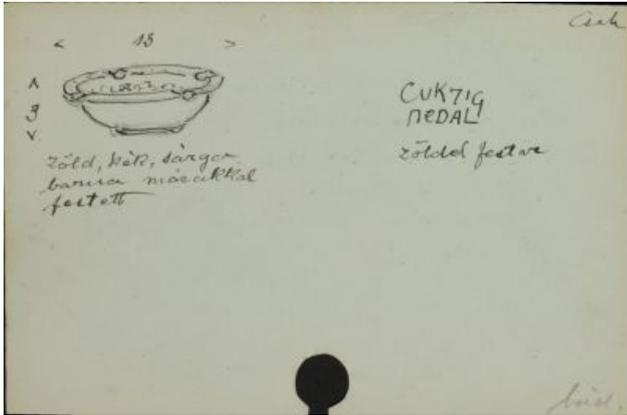 13
3
zöld, kék, sárga
barna mázakkal
festett
CUKZIG
NEDAL
zölddel festve